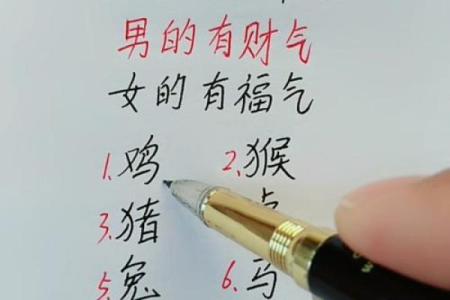 男的有财气
女的有福气
1.鸡 2.猴
3.猪
5.兔 6.马